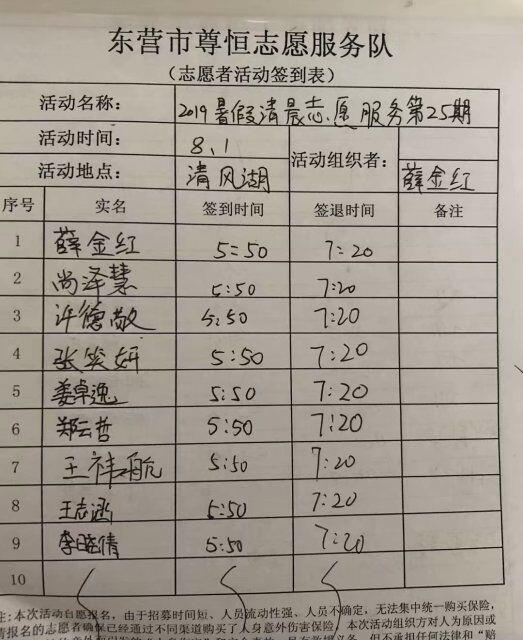 东营市尊恒志愿服务队
(志愿者活动签到表)
活动名称: 2019暑假清晨志愿服务第25期
活动时间: 8.1
活动组织者: 薛金红
活动地点: 清风湖
序号 实名 签到时间 签退时间 备注
1 薛金红 5:50 7:20
2 尚泽慧 5:50 7:20
3 许德敬 5:50 7:20
4 张笑妍 5:50 7:20
5 姜卓逸 5:50 7:20
6 郑云哲 5:50 7:20
7 王祎航 5:50 7:20
8 王志涵 5:50 7:20
9 李晓倩 5:50 7:20
10
注:本次活动自愿报名，由于招募时间短、人员流动性强、人员不确定，无法集中统一购买保险，
请报名的志愿者确保已经通过不同渠道购买了人身意外伤害保险，本次活动组织方对人为原因或